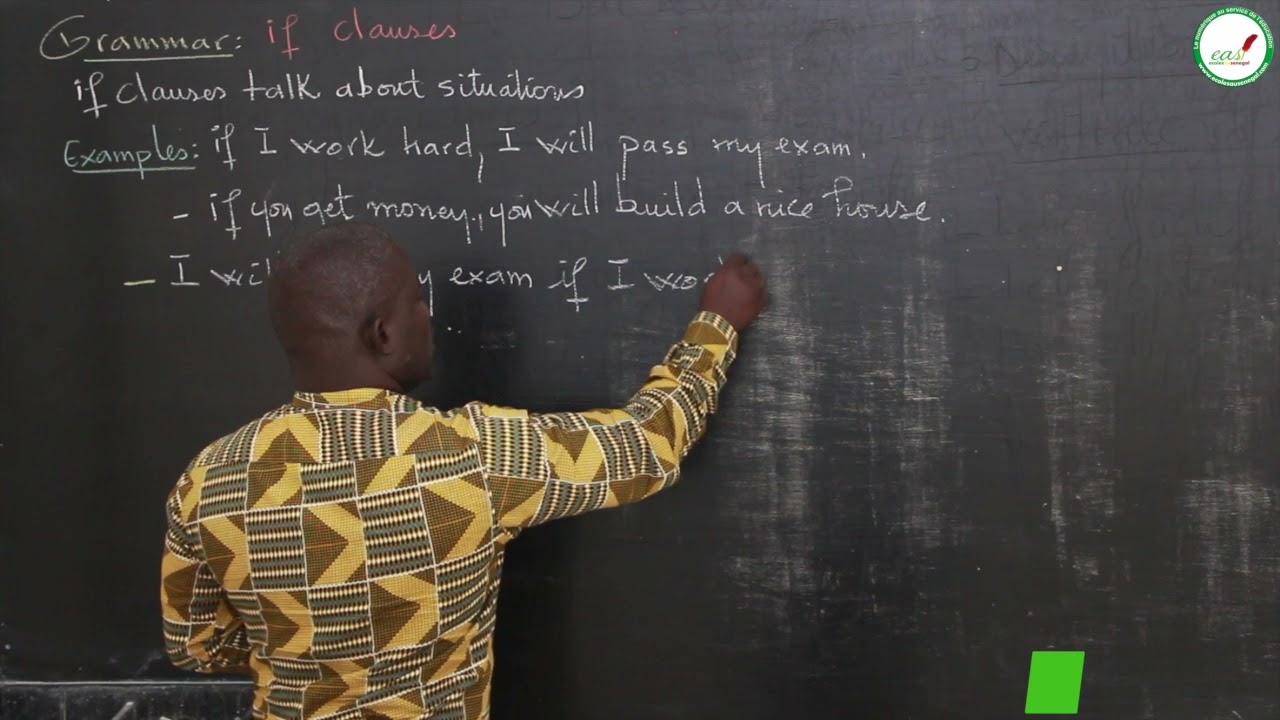 Grammar: if clauses
if clauses talk about situations
Examples: if I work hard, I will pass my exam.
- if you get money, you will build a nice house.
- I wil y exam if I wor
Le numérique au service de l'éducation
eas
ecolesausenegal
www.ecolesausenegal.com